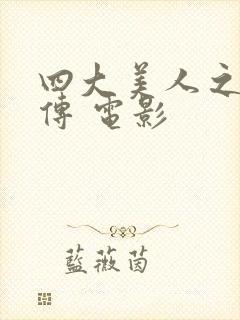 四大美人之
傳 電影
藍薇茵